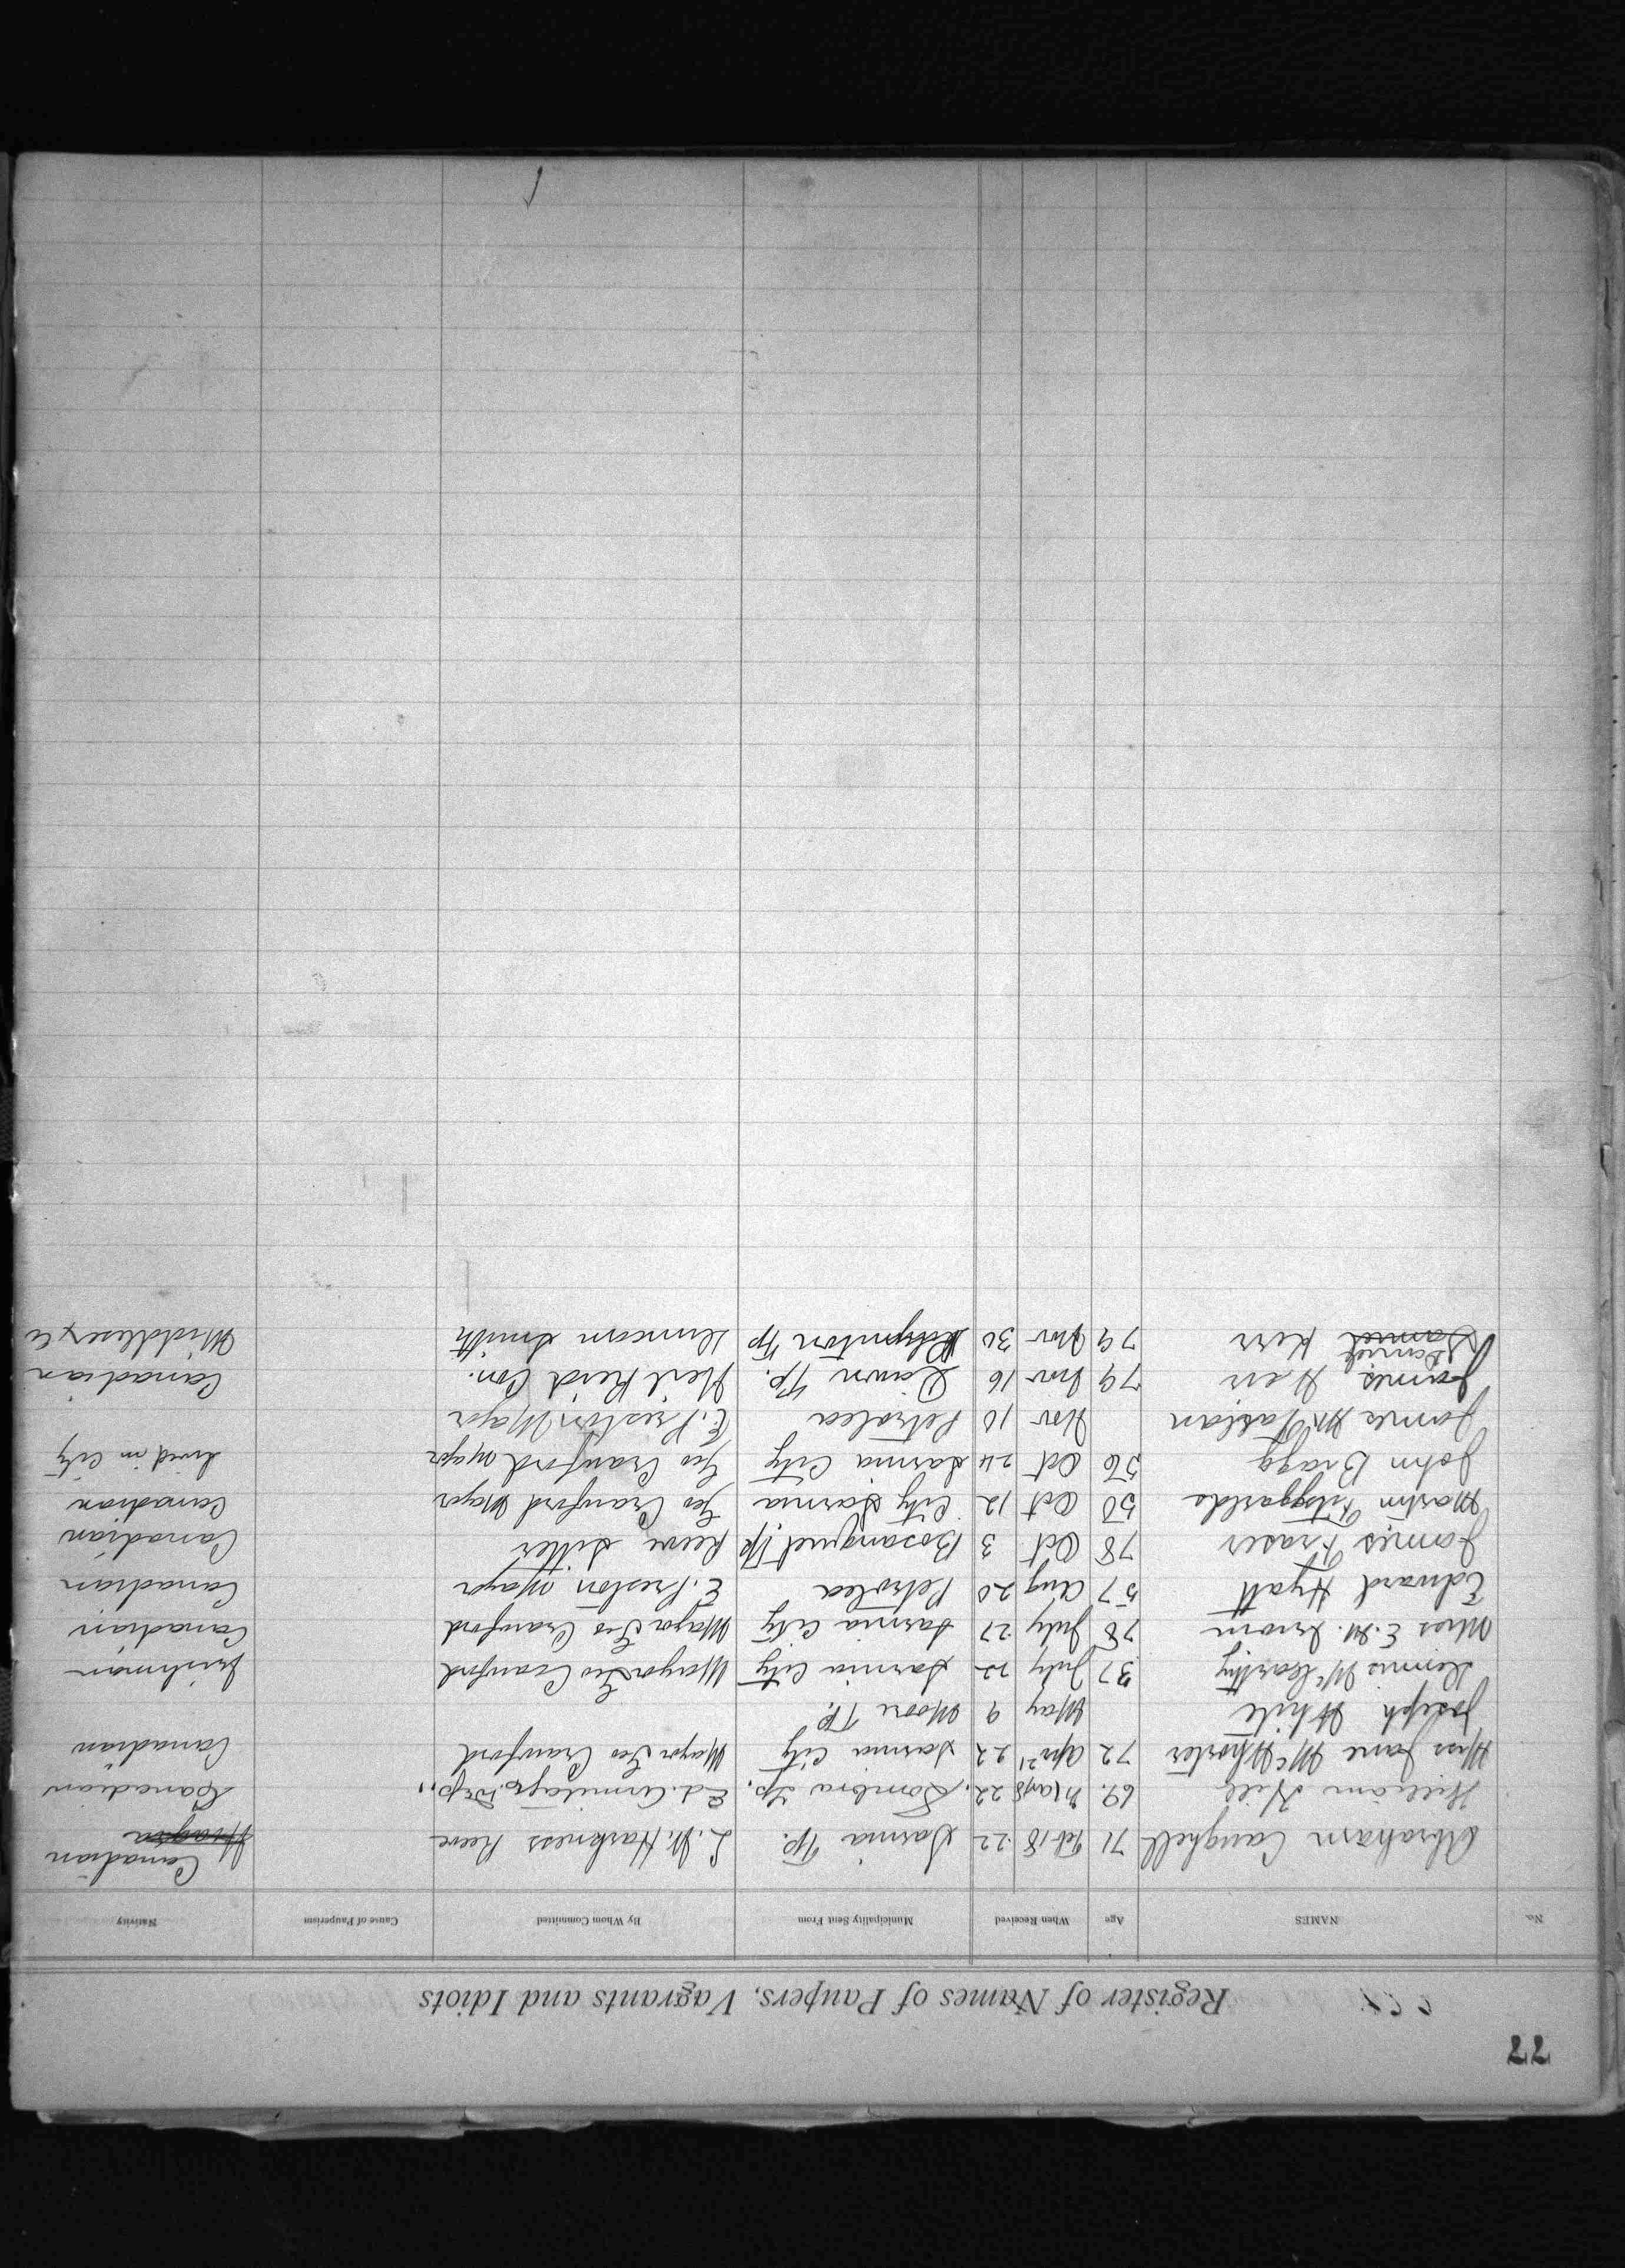 77
Register of Names of Paupers, Vagrants and Idiots
No. NAMES Age When Received Municipality Sent From By Whom Committed Cause of Pauperism Nativity
Abraham Caughell 71 Feb 18 22 Sarnia Tp. L. W. Harkness Reeve Canadian
William Hill 69. May 8 22 Sombra Tp. Ed. Armitage. Dep. Canadian
Miss Jane McWhorter 72 Apr 21 22 Sarnia City Mayor Geo Crawford Canadian
Joseph White May 9 Moore Tp.
Dennis McCarthy 37 July 22 Sarnia City Mayor Geo Crawford Irishman
Miss E. M. Irwin 78 July 27 Sarnia City Mayor Geo Crawford Canadian
Edward Hyatt 57 Aug 20 Petrolea E. Preston Mayor Canadian
James Fraser 78 Oct 3 Bosanquet Tp Reeve Sitter Canadian
Martin Fitzgarlds 50 Oct 12 City Sarnia Geo Crawford Mayor Canadian
John Bragg 56 Oct 24 Sarnia City Geo Crawford Mayor Lived in City
James McFablan Nov 10 Petrolea E. Preston Mayor
James Hen 79 Nov 16 Dawn Tp. Neil Reid Con. Canadian
Daniel Kerr 79 Nov 30 Plympton Tp Duncan Smith Middlesex Co